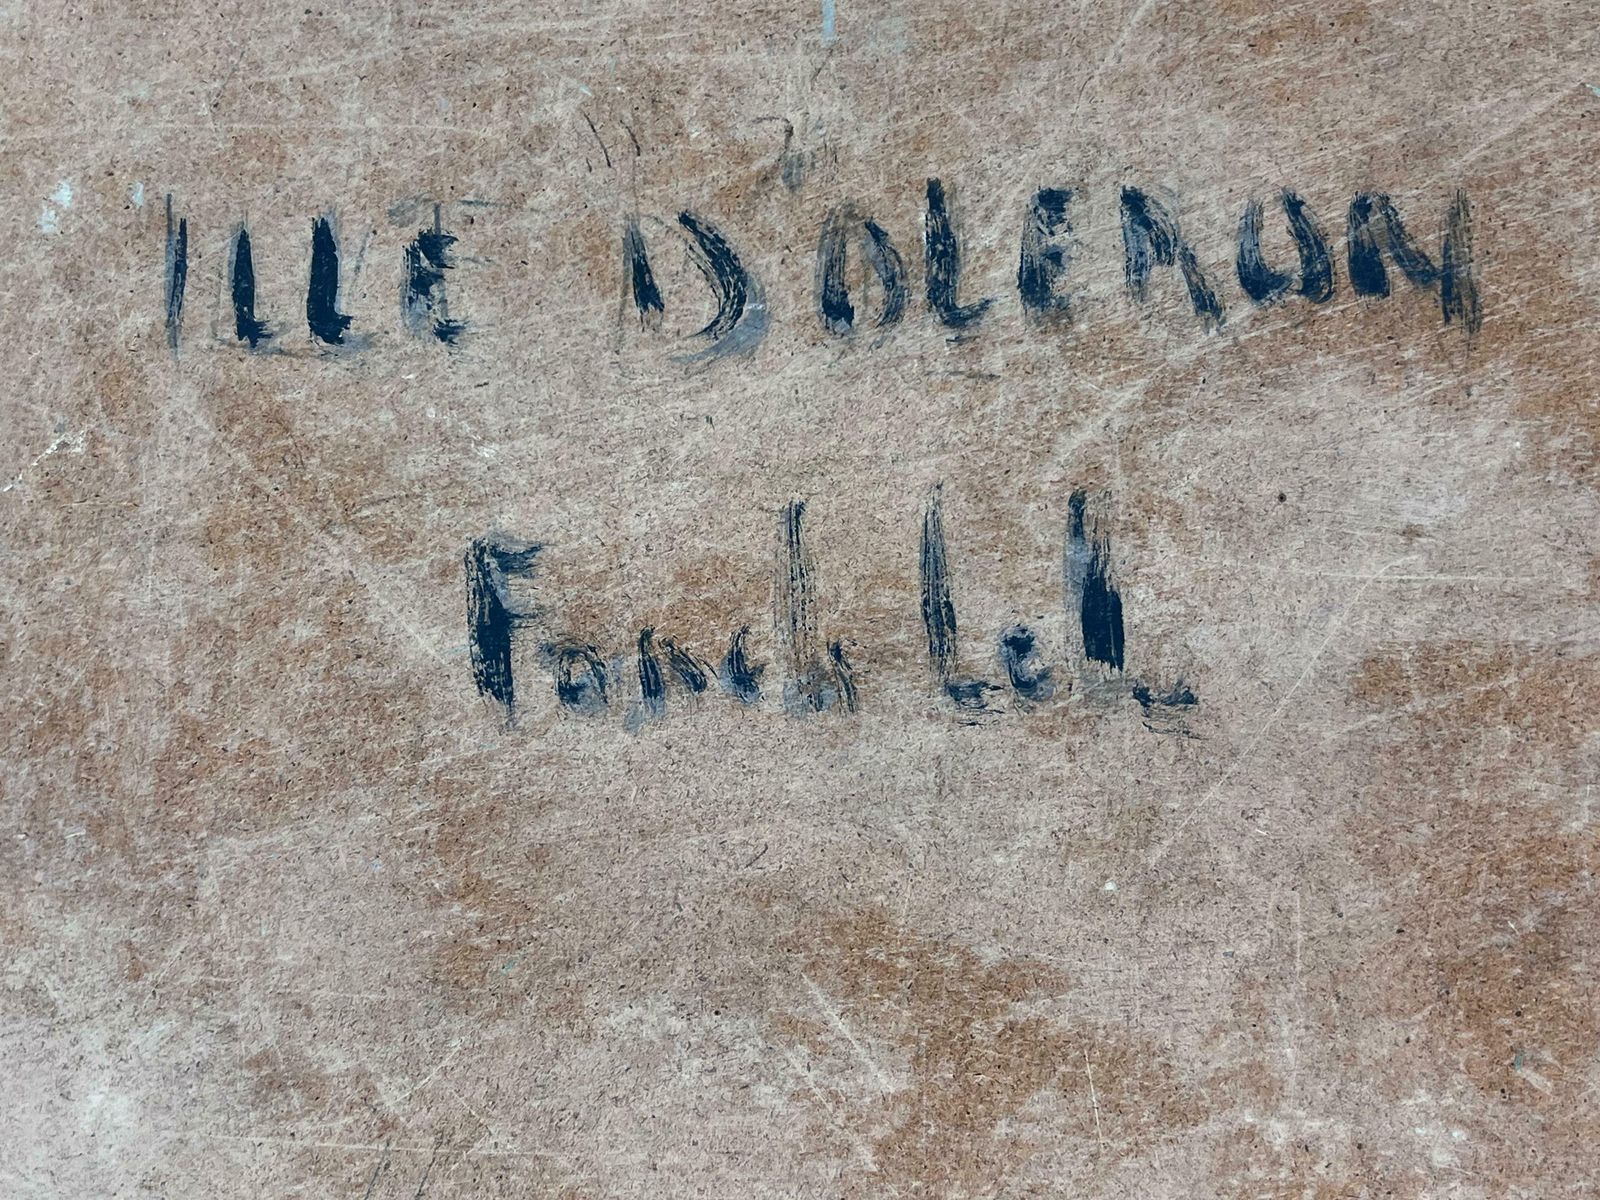 ILLE D'OLERON
Fanch Lel